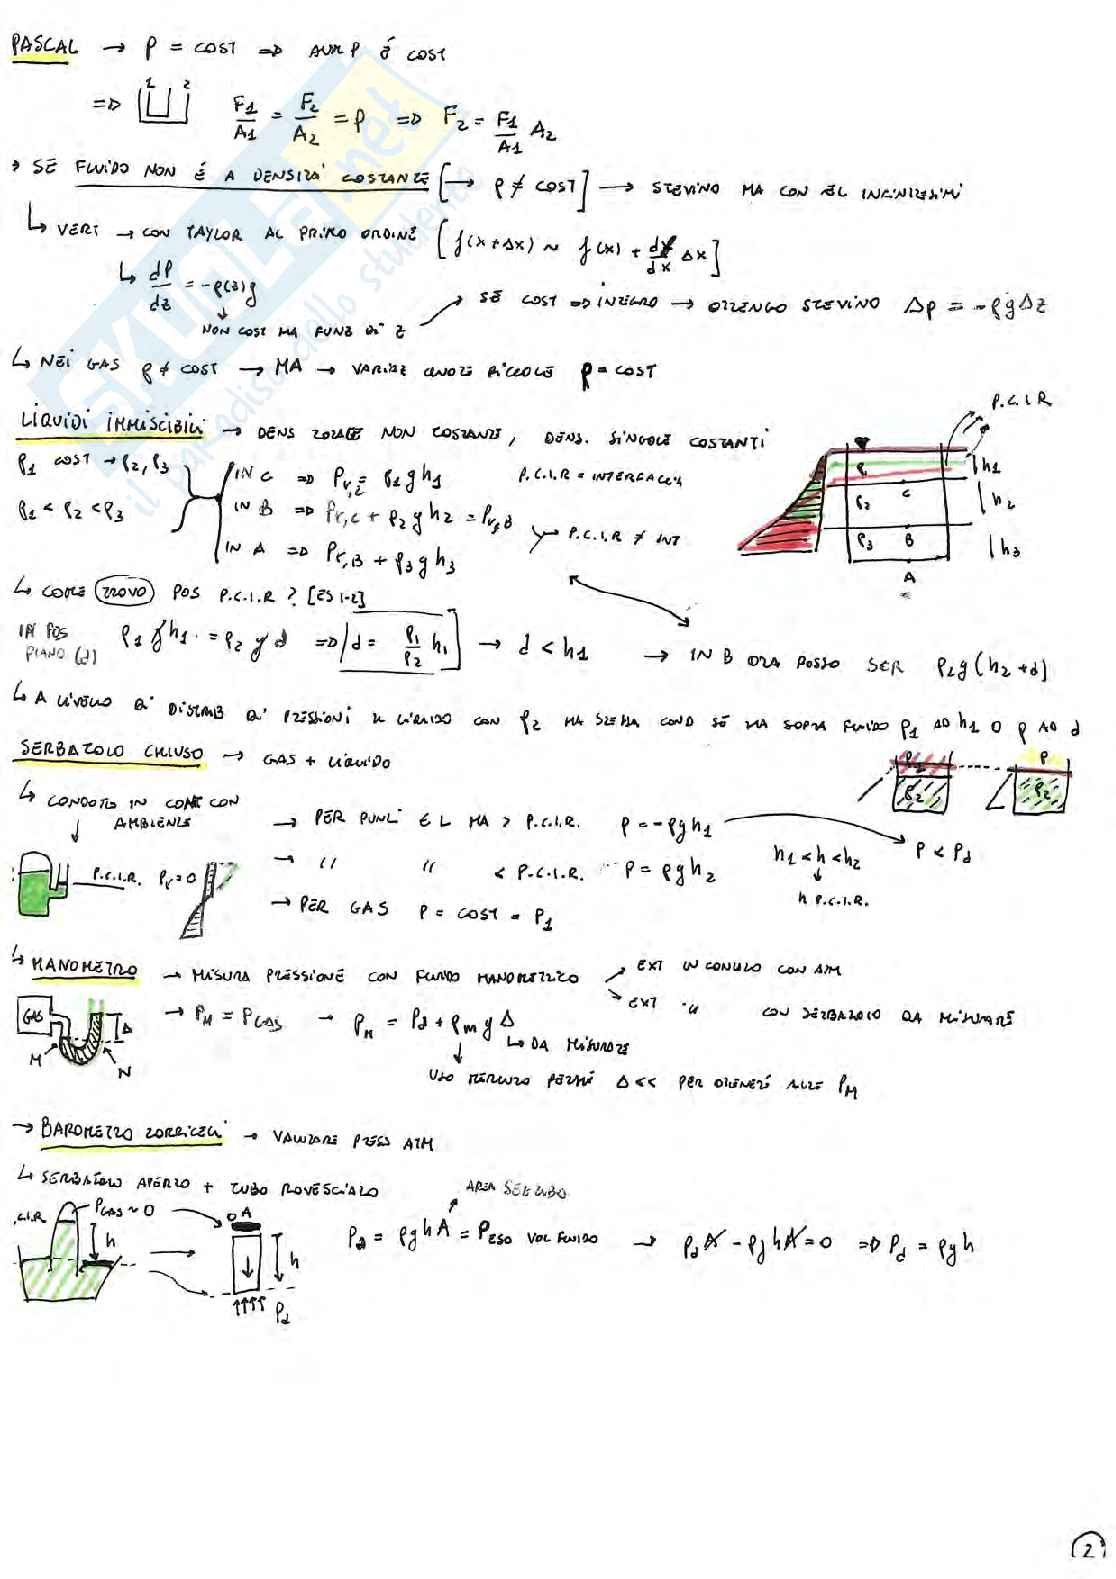 PASCAL → p = COST ⇒ AUM P È COST
⇒ 1 2 F1/A1 = F2/A2 = p ⇒ F2 = F1/A1 A2
→ SE FLUIDO NON È A DENSITÀ COSTANTE [→ ρ ≠ COST] → STEVINO MA CON EL INFINITESIMI
↳ VERT → CON TAYLOR AL PRIMO ORDINE [f(x+Δx) ~ f(x) + df/dx Δx]
↳ dP/dz = -ρ(z)g
NON COST MA FUNZ DI Z → SE COST ⇒ INTEGRO → OTTENGO STEVINO Δp = -ρgΔz
↳ NEI GAS ρ ≠ COST → MA → VARIAZ QUOTE PICCOLE ρ = COST
LIQUIDI IMMISCIBILI → DENS TOTALE NON COSTANTE, DENS. SINGOLE COSTANTI
P.C.I.R
ρ1 COST → ρ2, ρ3
ρ1 < ρ2 < ρ3
IN C ⇒ Pr,c = ρ1 g h1
P.C.I.R = INTERFACCIA
IN B ⇒ Pr,C + ρ2 g h2 = Pr,B
P.C.I.R ≠ INT
IN A ⇒ Pr,B + ρ3 g h3
ρ1 h1
ρ2 C h2
ρ3 B h3
A
↳ COME TROVO POS P.C.I.R? [ES 1-2]
POS PIANO (d) ρ1 g h1 = ρ2 g d ⇒ d = ρ1/ρ2 h1 → d < h1 → IN B ORA POSSO SCR ρ2g(h2+d)
↳ A LIVELLO DI DISTRIB DI PRESSIONI IL LIQUIDO CON ρ2 HA STESSA COND SE HA SOPRA FLUIDO ρ1 AD h1 O ρ AD d
SERBATOIO CHIUSO → GAS + LIQUIDO
ρ2 ρ2
↳ CONDOTTO IN CONT CON AMBIENTE
→ PER PUNTI ∈ L MA > P.C.I.R. p = -ρgh1 → P < Pa
→ " " < P.C.I.R. p = ρgh2
h1 < h < h2
h P.C.I.R.
P.C.I.R. Pr=0
→ PER GAS P = COST = P1
↳ MANOMETRO → MISURA PRESSIONE CON FLUIDO MANOMETRICO
EXT IN CONTATTO CON ATM
EXT " CON SERBATOIO DA MISURARE
GAS Δ M N
→ PM = PGAS → PM = Pa + ρm g Δ
↳ DA MISURARE
USO MERCURIO PERCHÉ Δ << PER OTTENERE ALTE PM
→ BAROMETRO TORRICELLI → VALUTARE PRESS ATM
↳ SERBATOIO APERTO + TUBO ROVESCIATO
AREA SEZ TUBO
.C.I.R PGAS ~ 0 h
0 A h Pa
Pa = ρghA = PESO VOL FLUIDO → PaA - ρghA = 0 ⇒ Pa = ρgh
2
SKUOLA.net
il paradiso dello studente